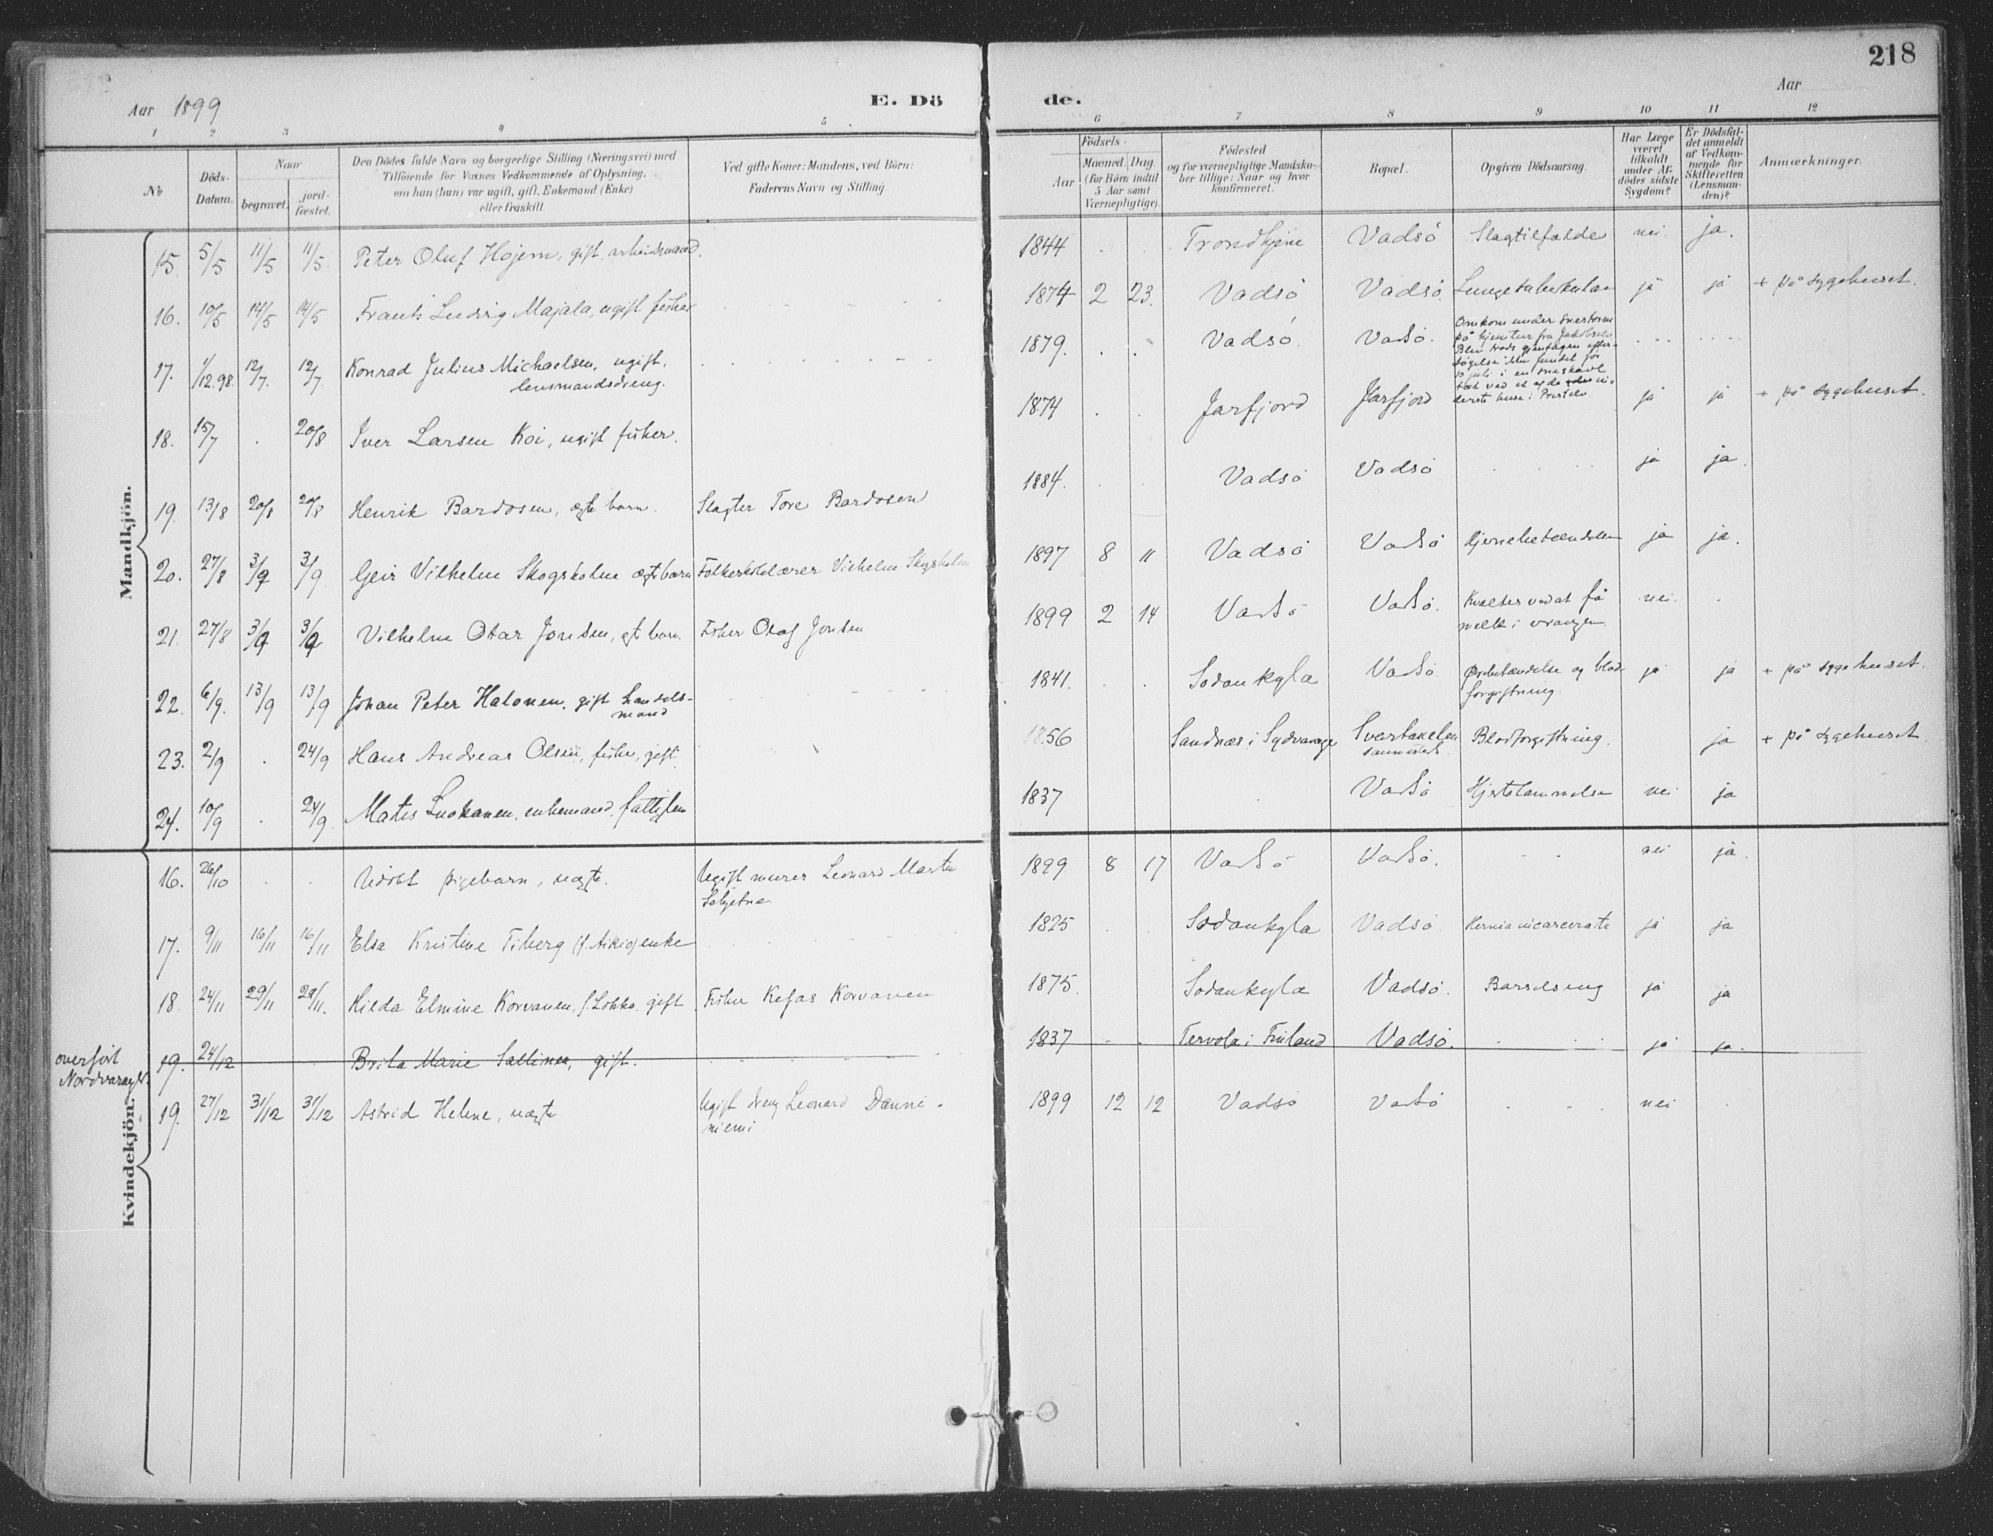 218
Aar 1899
E. Dö
de.
Aar
1 2 3 4 5
6 7 8 9 10 11 12
No
Döds-Datum.
Naar
begravet.
jord-fæstet.
Den Dödes fulde Navn og borgerlige Stilling (Næringsvei) med
Tilföiende for Voxnes Vedkommende af Oplysning,
om hun (han) var ugift, gift, Enkemand (Enke)
eller fraskilt.
Ved gifte Koner: Mandens, ved Börn:
Faderens Navn og Stilling.
Födsels-
Aar
Maaned. Dag.
(for Börn indtil
5 Aar samt
Værnepligtige).
Födested
og for værnepligtige Mandska-
ber tillige: Naar og hvor
konfirmeret.
Bopæl.
Opgiven Dödsaarsag.
Har Læge
været
tilkaldt
under Af-
dödes sidste
Sygdom?
Er Dödsfal-
det anmeldt
af Vedkom-
mende for
Skifteretten
(Lensman-
den)?
Anmærkninger.
Mandkjön.
15. 5/5 11/5 11/5. Peter Oluf Hojem, gift, arbeidsmand. 1844 Trondhjem Vadsö Slagtilfælde nei ja.
16. 10/5 14/5 14/5 Frants Ludvig Majala, ugift fisker 1874 2 23. Vadsö Vadsö. ja ja + på sygehuset.
17. 1/12.98. 12/7. 12/7. Konrad Julius Michaelsen, ugift,
lensmandsdreng. 1879. Vadsö. Vadsö.
Omkom under snestorm
på hjemtur fra Jakobselv
Blev trods gjentagen efter-
søgelse
10 juli i en sneskavl
18. 15/7 20/8 Iver Larsen Koi, ugift fisker. 1874 Jarfjord Jarfjord ja ja + på sygehuset.
19. 13/8 20/8 20/8 Henrik Bardosen, ægte barn. Slagter Tore Bardosen 1884. Vadsö Vadsö ja ja.
20. 27/8 3/9 3/9 Geir Vilhelm Skogsholm ægte barn Vilhelm Skogsholm 1897 8 11 Vadsö Vadsö Hjernebetændelse ja ja.
21. 27/8 3/9 3/9 Vilhelm Otar Jonsen, æt barn. Fisker Olaf Jonsen 1899 2 14 Vadsö Vadsö. Kvaltes ved at få
melk i vrangen nei
22. 6/9. 13/9 13/9 Johan Peter Halonen, gift handels-
mand 1841. Sodankyla Vadsö og blod-
forgiftning. ja ja + på sygehuset.
23. 2/9 24/9 Hans Andreas Olsen, fisker, gift. 1856 Sandnæs i Sydvaranger Blodforgiftning. ja + på sygehuset.
24. 10/9 24/9 Mats Luokanen, enkemand, fattiglem 1837 Vadsö Hjertelammelse nei ja
Kvindekjön.
16. 26/10 Udöbt pigebarn, uægte. Ugift murer Leonard Martin 1899 8 17 Vadsö Vadsö. nei ja.
17. 9/11 16/11 16/11 Elsa Kristine Tiberg (f. Aikio) enke 1825 Sodankyla Vadsö. Hernia incarcerata ja ja
18. 24/11 29/11 29/11. Hilda Elmine Korvanen, f. Lokka, gift. Fisker Kefas Korvanen 1875. Sodankyla Vadsö. Barselseng ja ja
overfört
Nordvaranger.
19. 24/12 Brita Marie Sallinen, gift. 1837 Tervola i Finland Vadsö. ja ja.
19. 27/12 31/12 31/12 Astrid Helene, uægte Ugift dreng Leonard Danni-
niemi 1899 12 12 Vadsö Vadsö nei